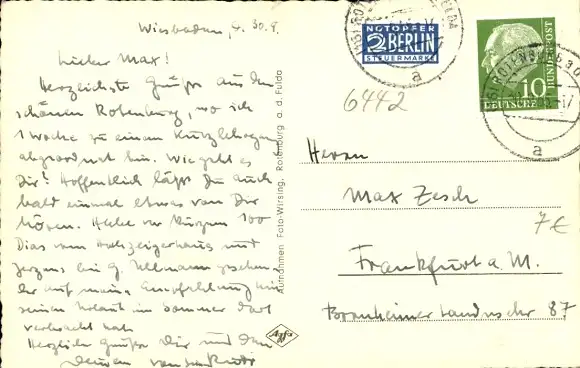 Wiesbaden, d. 30.9.
Lieber Max!
Herzlichste Grüße aus dem
schönen Rotenburg, wo ich
1 Woche zu einem Kurzlehrgang
abgeordnet bin. Wie geht es
Dir? Hoffentlich läßt Du auch
bald einmal etwas von Dir
hören. Habe vor kurzem 100
Dias vom und
bei G. Ullmann gesehen,
der auf meine Empfehlung hin
seinen Urlaub im Sommer dort
verbracht hat.
Herzliche Grüße Dir und den
Deinen von
Aufnahmen Foto-Wirsing, Rotenburg a. d. Fulda
Agfa
NOTOPFER
2 BERLIN
STEUERMARKE
a
10
DEUTSCHE
BUNDESPOST
a
6442
Herrn
Max Zesch
7€
Frankfurt a. M.
Bornheimer Landwehr 87